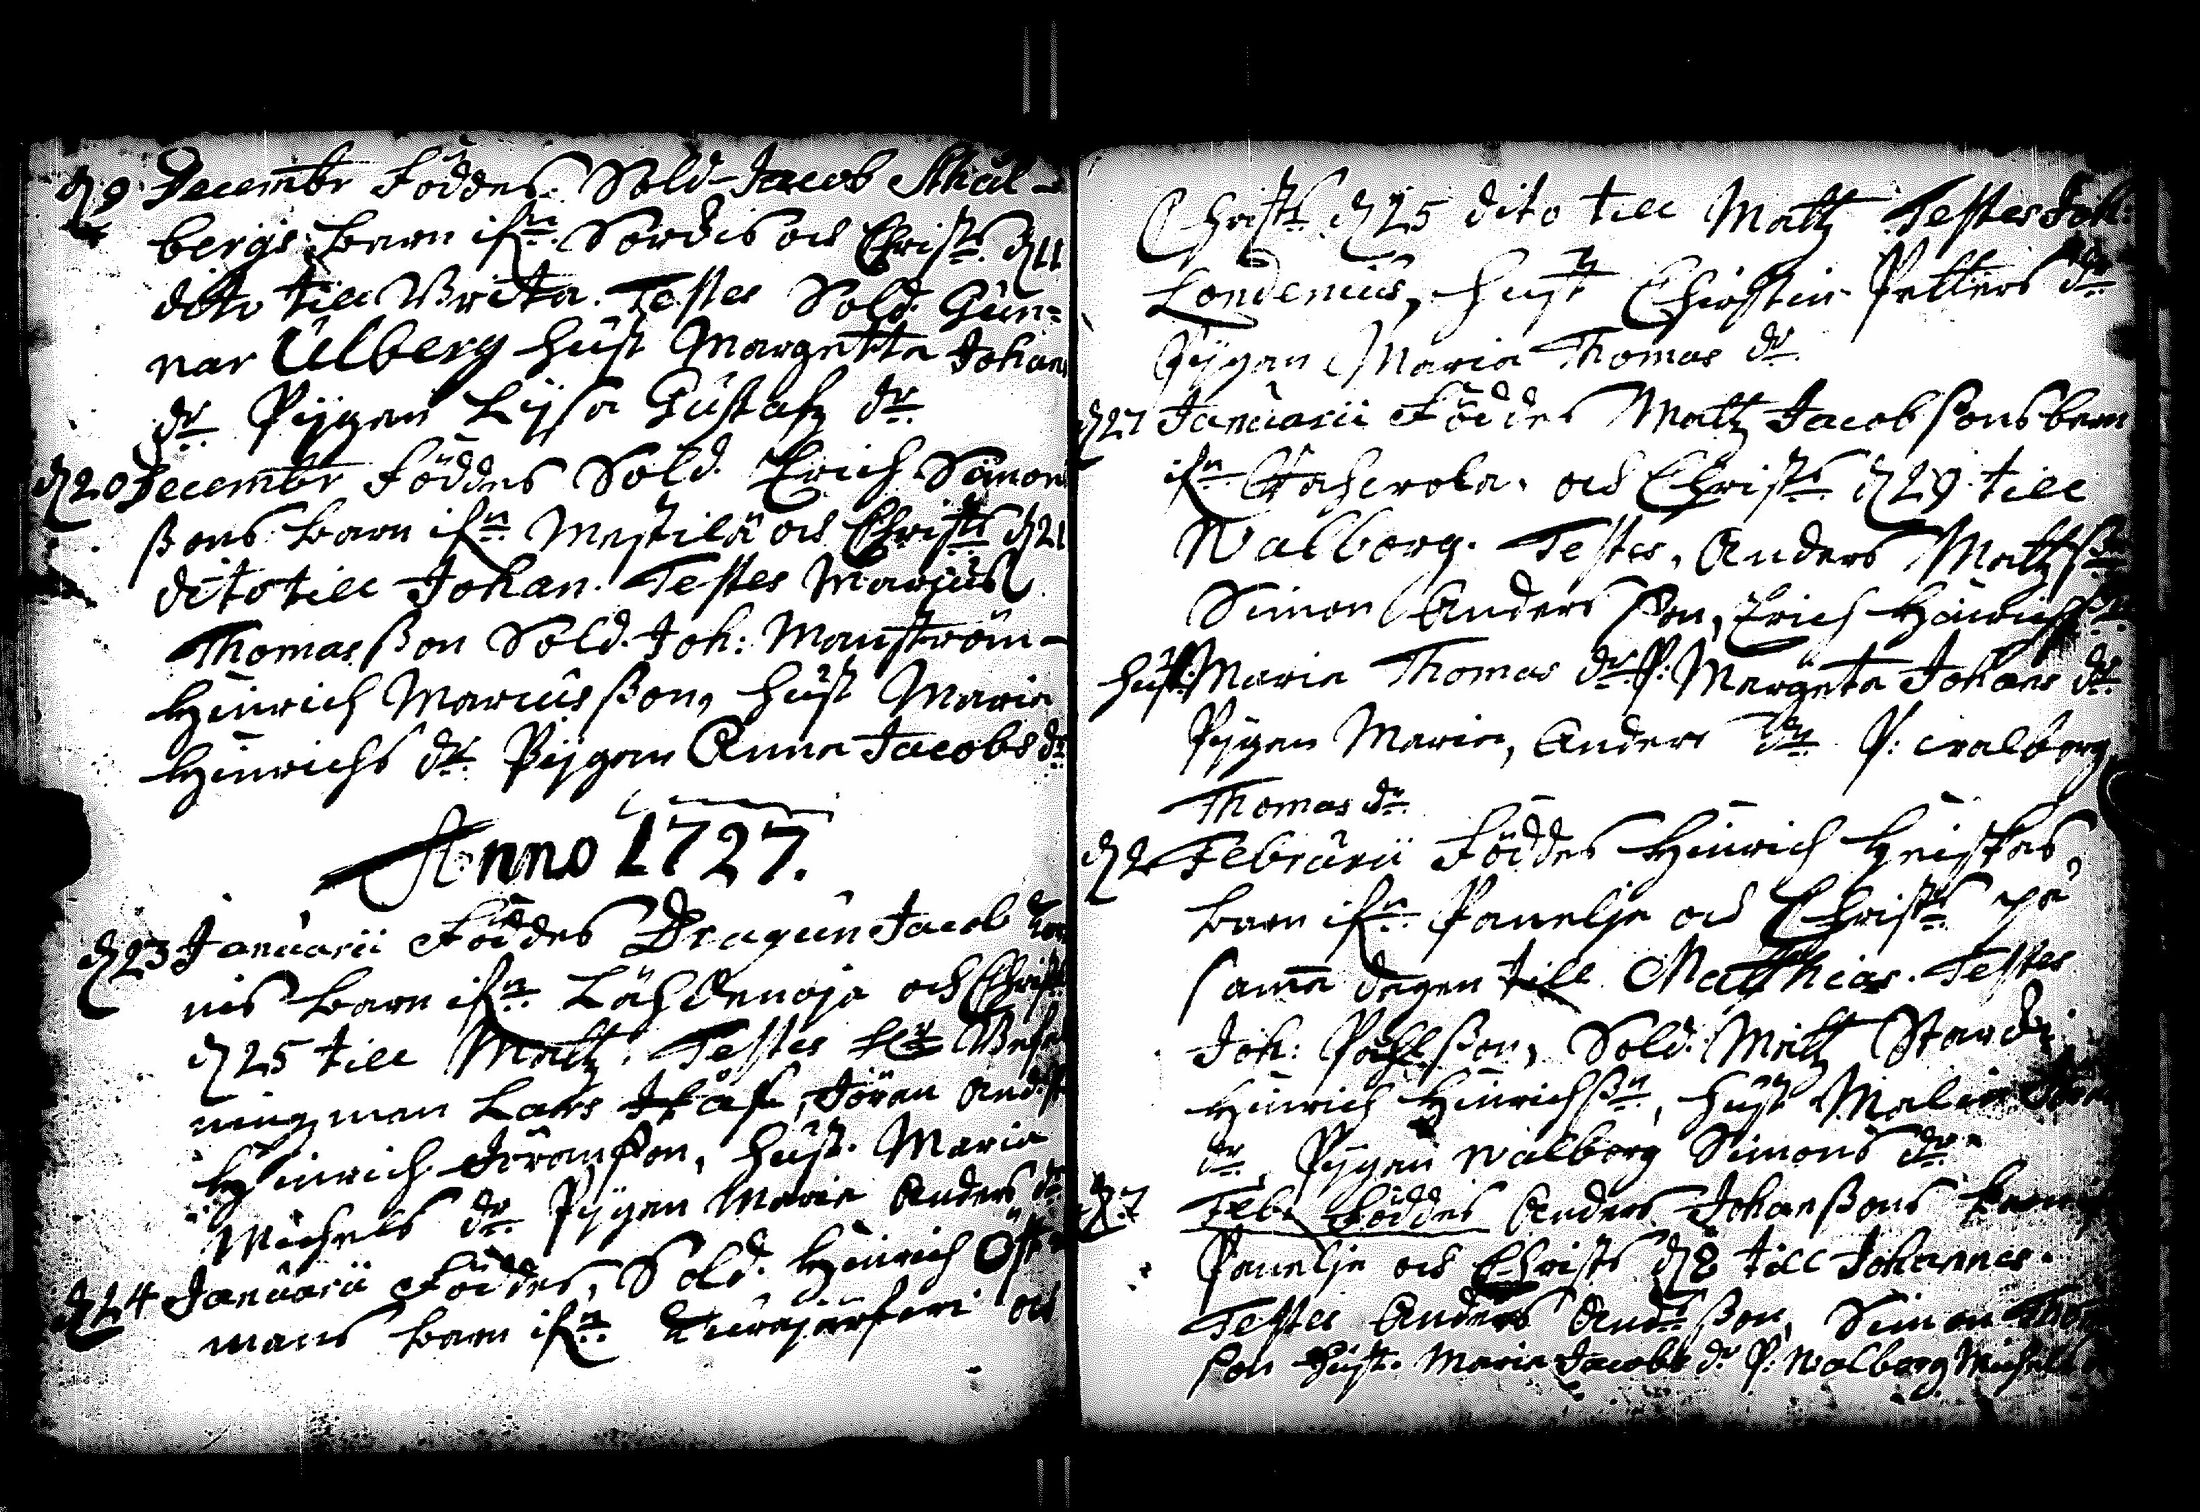 d 9 Decembr Föddes Sold Jacob Skål-
bergs barn ifrn Sordis och Christs d 11
dito till Brita. Testes Sold. Gun-
nar Ulberg hust Margetta Johans
dr. Pijgan Lijsa Gustafz dr.
d 20 Decembr Föddes Sold. Erich Simons
ßons barn ifrn Mestilä och Christs d 21
dito till Johan. Testes Marcus
Thomas ßon Sold. Joh: Manström
Hinrich Marcus ßon, hust Maria
Hinrichs dr. Pijgan Anna Jacobs dr
Anno 1727.
d 23 Januarii Föddes Dragun Jacob
nis barn ifrn Lähdenoja och Christs
d 25 till Matz. Testes
ningzman Lars, Jöran And
Hinrich Jöranßon, hust. Maria
Michels dr. Pijgan Maria Anders dr
d 24 Januarii Föddes, Sold. Hinrich Öst
mans barn ifrn och
Christs d 25 dito till Matz Testes Joh:
Londenius, hust Chirstin Petters dr
Pijgan Maria Thomas dr.
d 27 Januarii Föddes Matz Jacobßons barn
ifrn och Christs d 29 till
Walborg. Testes, Anders Matz ßn
Simon Anders ßon, Erich Hinrich ßn
hust: Maria Thomas dr P: Margeta Johans dr.
Pijgan Maria, Anders dr P: walborg
Thomas dr.
d 2 Februarii Föddes Hinrich Heiskas
barn ifrn Panelja och Christs på
sama dagen till Matthias. Testes
Joh: Påhlßon, Sold. Matz Stard
Hinrich Hinrichßn, hust Malin
dr. Pijgan walborg Simons dr.
d 7 Feb. Föddes Anders Johanßons barn
Panelja och Christs d 8 till Johannes.
Testes Anders Andrs ßon, Simon Thom
ßon hust. Maria Jacobs dr P: Walborg Michels